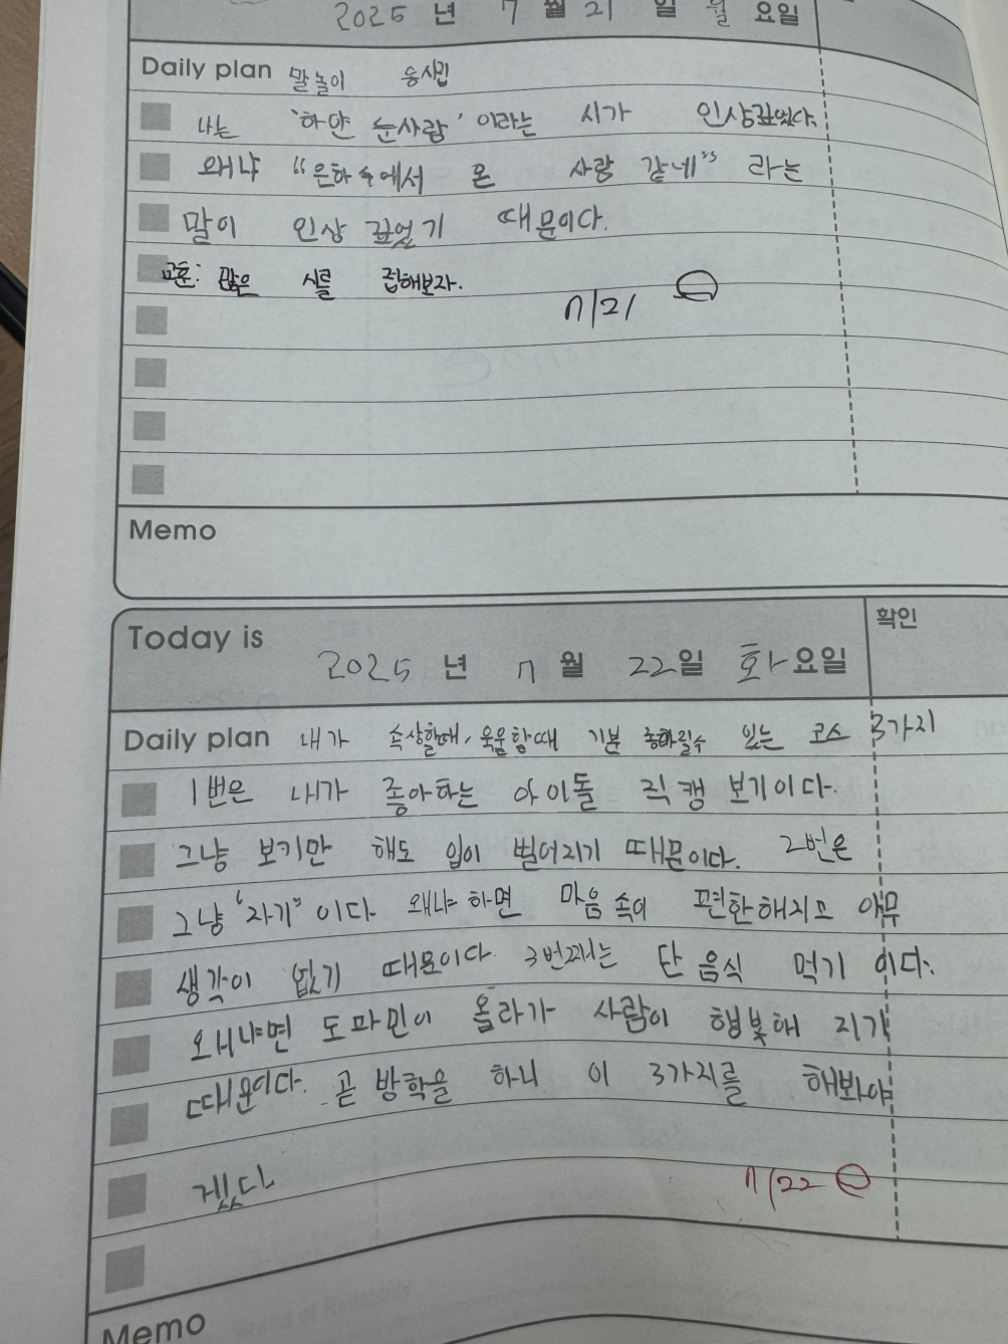 2025 년 7 월 21 일 월 요일
Daily plan 말놀이 동시집
나는 '하얀 눈사람' 이라는 시가 인상깊었다.
왜냐 "은하수에서 온 사람 같네" 라는
말이 인상 깊었기 때문이다.
교훈: 많은 시를 접해보자.
7/21
Memo
Today is 2025 년 7 월 22 일 화 요일 확인
Daily plan 내가 속상할때, 우울할때 기분 좋아질수 있는 코스 3가지
1번은 내가 좋아하는 아이돌 직캠 보기이다.
그냥 보기만 해도 입이 벌어지기 때문이다. 2번은
그냥 "자기" 이다 왜냐하면 마음 속이 편한해지고 아무
생각이 없기 때문이다. 3번째는 단 음식 먹기 이다.
왜냐면 도파민이 올라가 사람이 행복해 지기
때문이다. 곧 방학을 하니 이 3가지를 해봐야
겠다
7/22
Memo